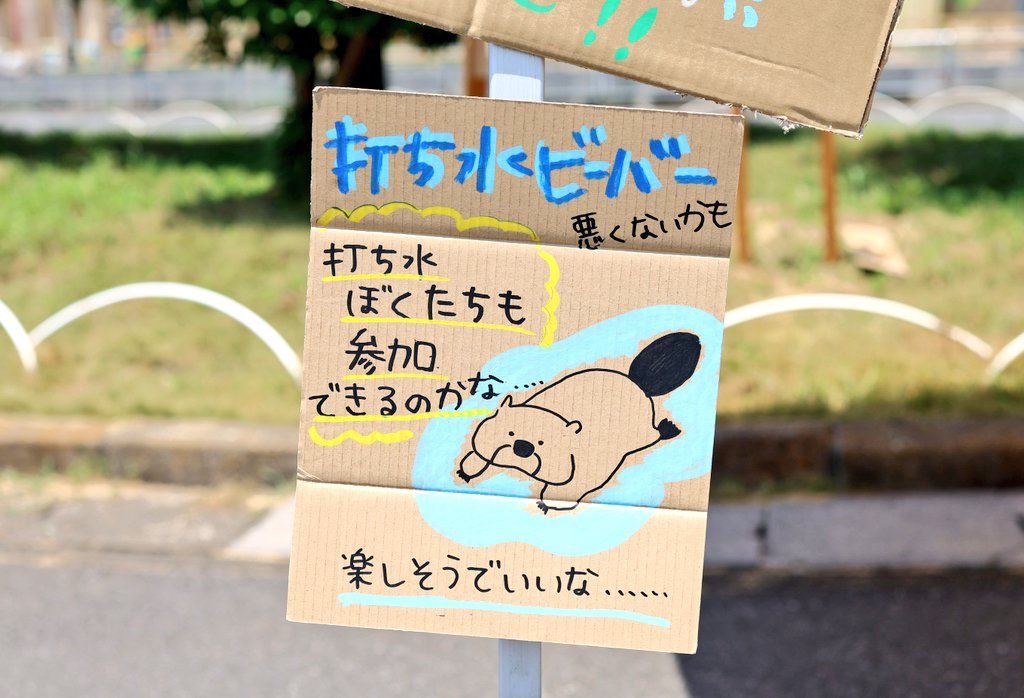 打ち水ビーバー
悪くないかも
打ち水
ぼくたちも
参加
できるのかな....
楽しそうでいいな......